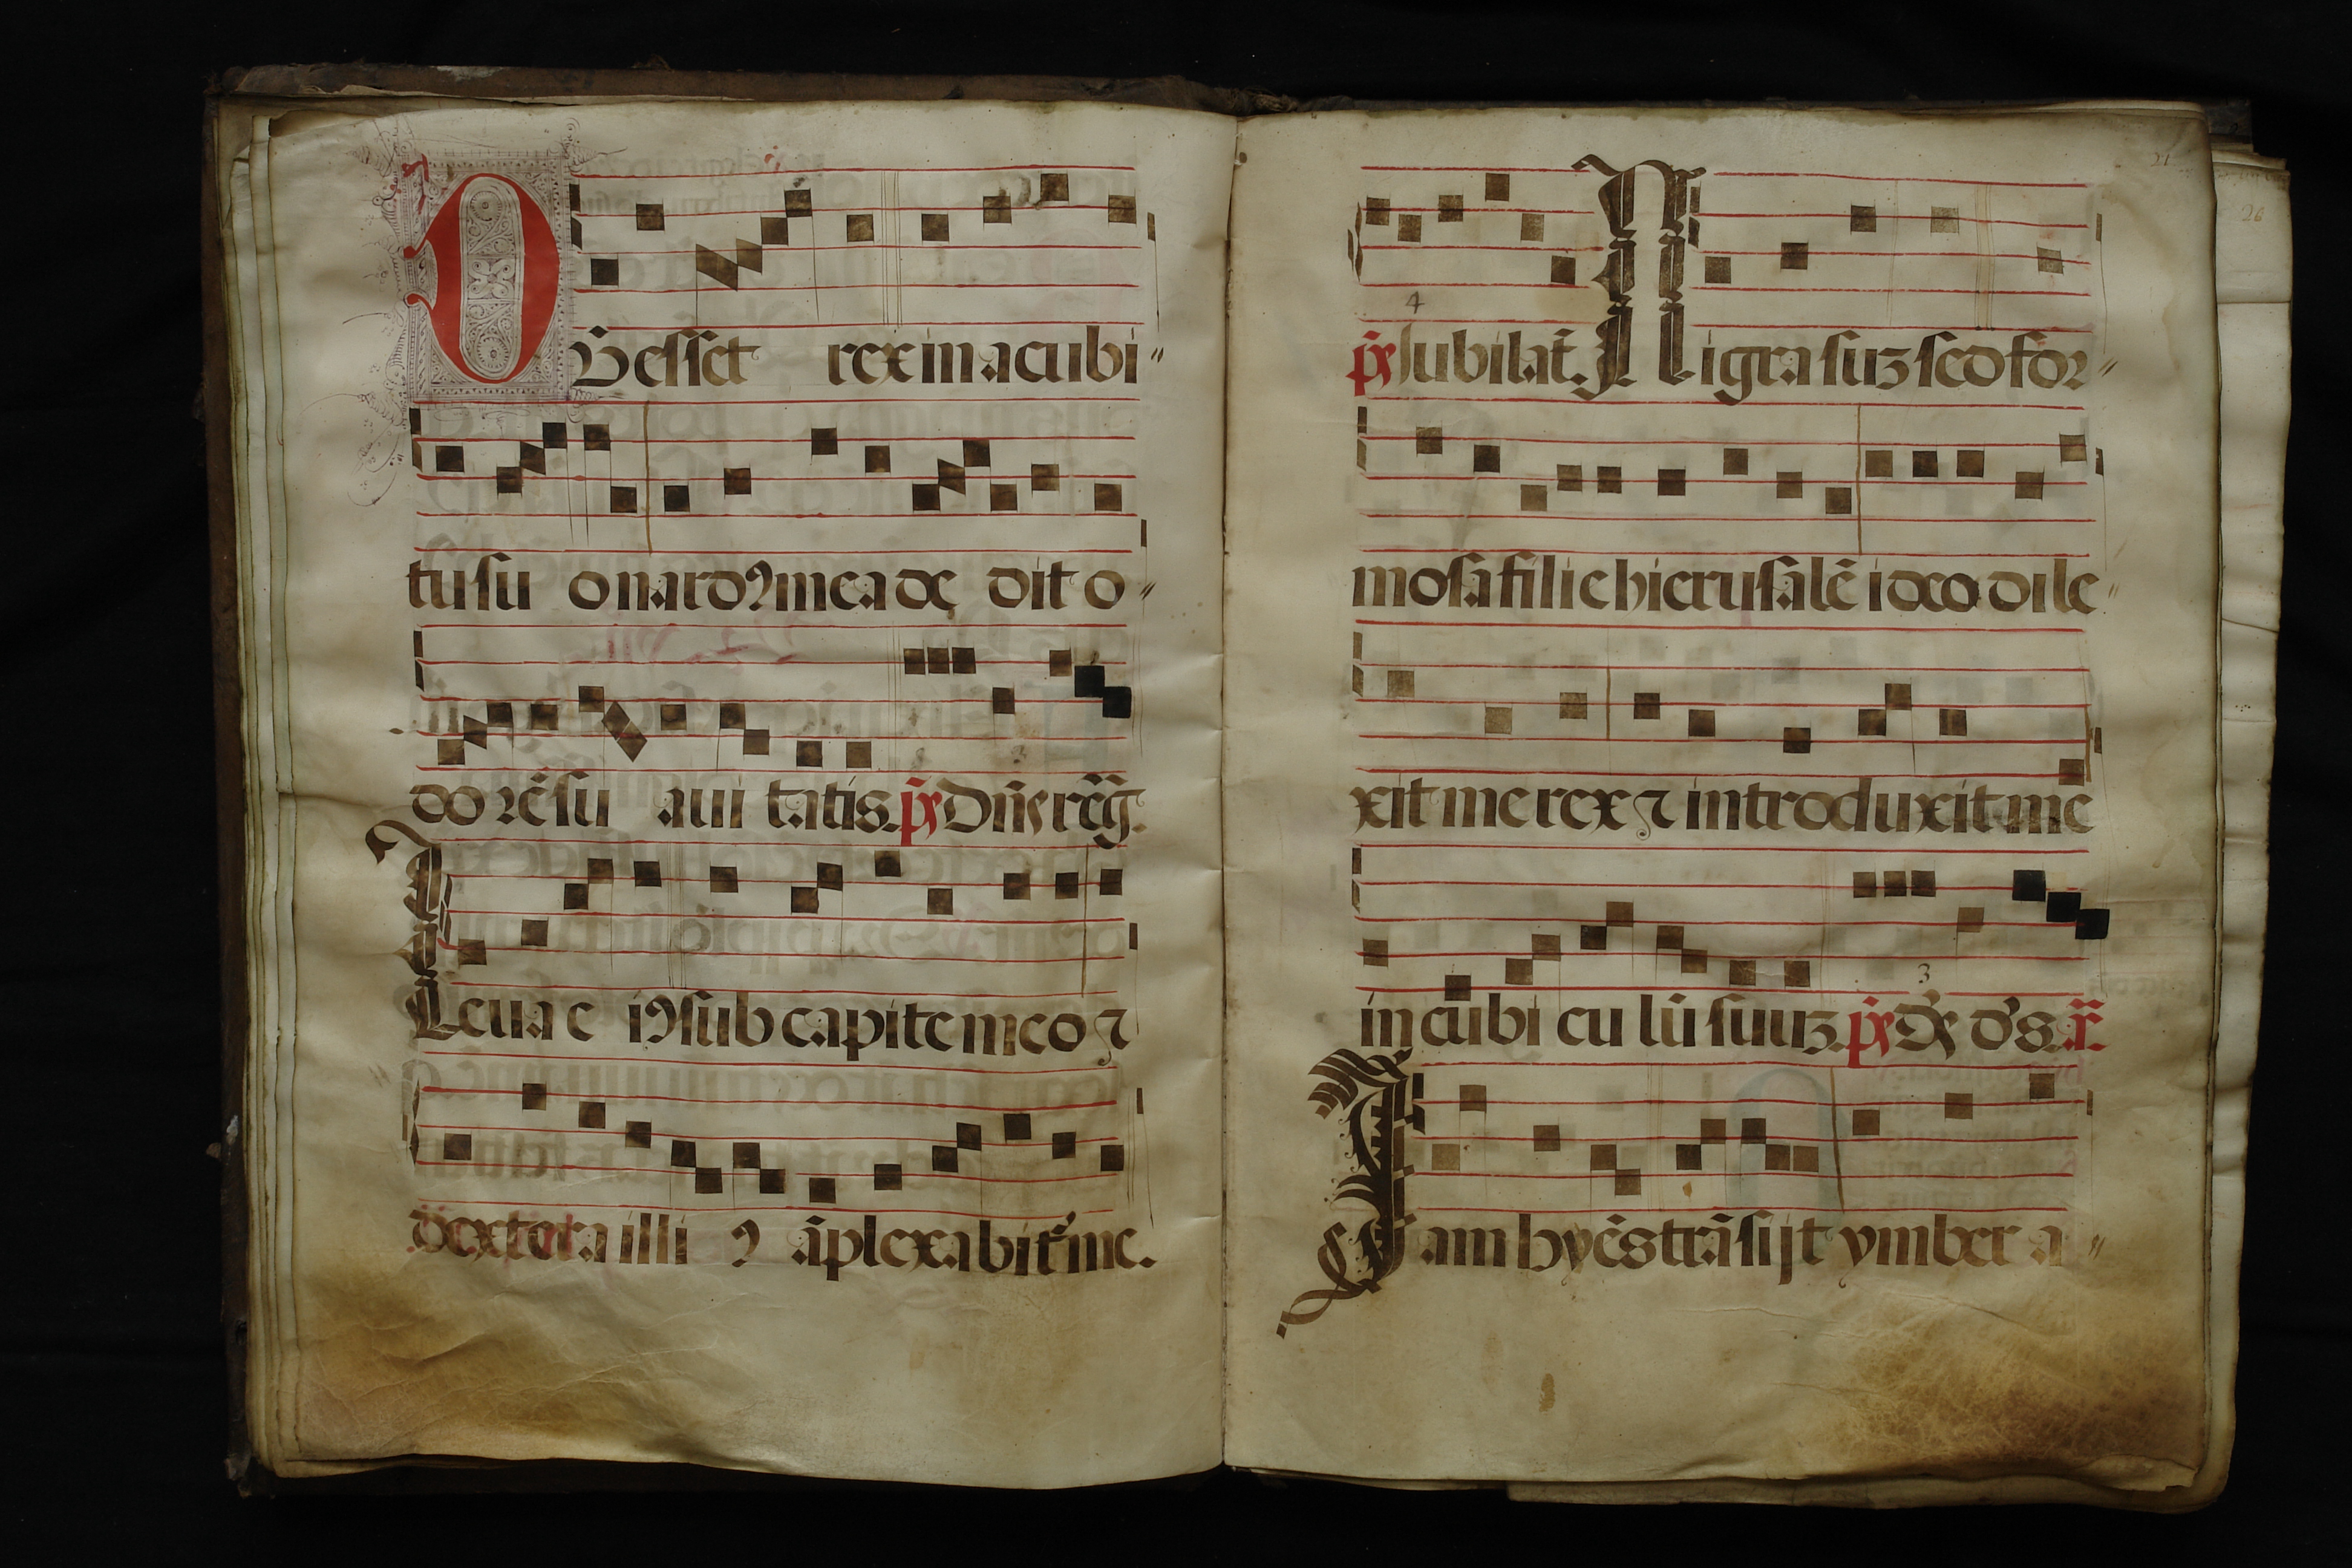 DUm esset rex in acubi〃
tu su o nardꝯ mea de dit o〃
do rē su aui tatis. p̄s Dn̄s reg̃.
Leua e iꝯ sub capite meo ⁊
dextera illi ꝯ āplexabit᷑ me.
21
26
4
p̄s Jubilat̄. Nigra suꝫ sed for〃
mosa filie hierusalē ideo dile〃
xit me rex ⁊ introduxit me
3
in cubi cu lū suuꝫ. p̄s Ds̄ d's. x̄.
Jam hyēs trāsijt ymber a〃